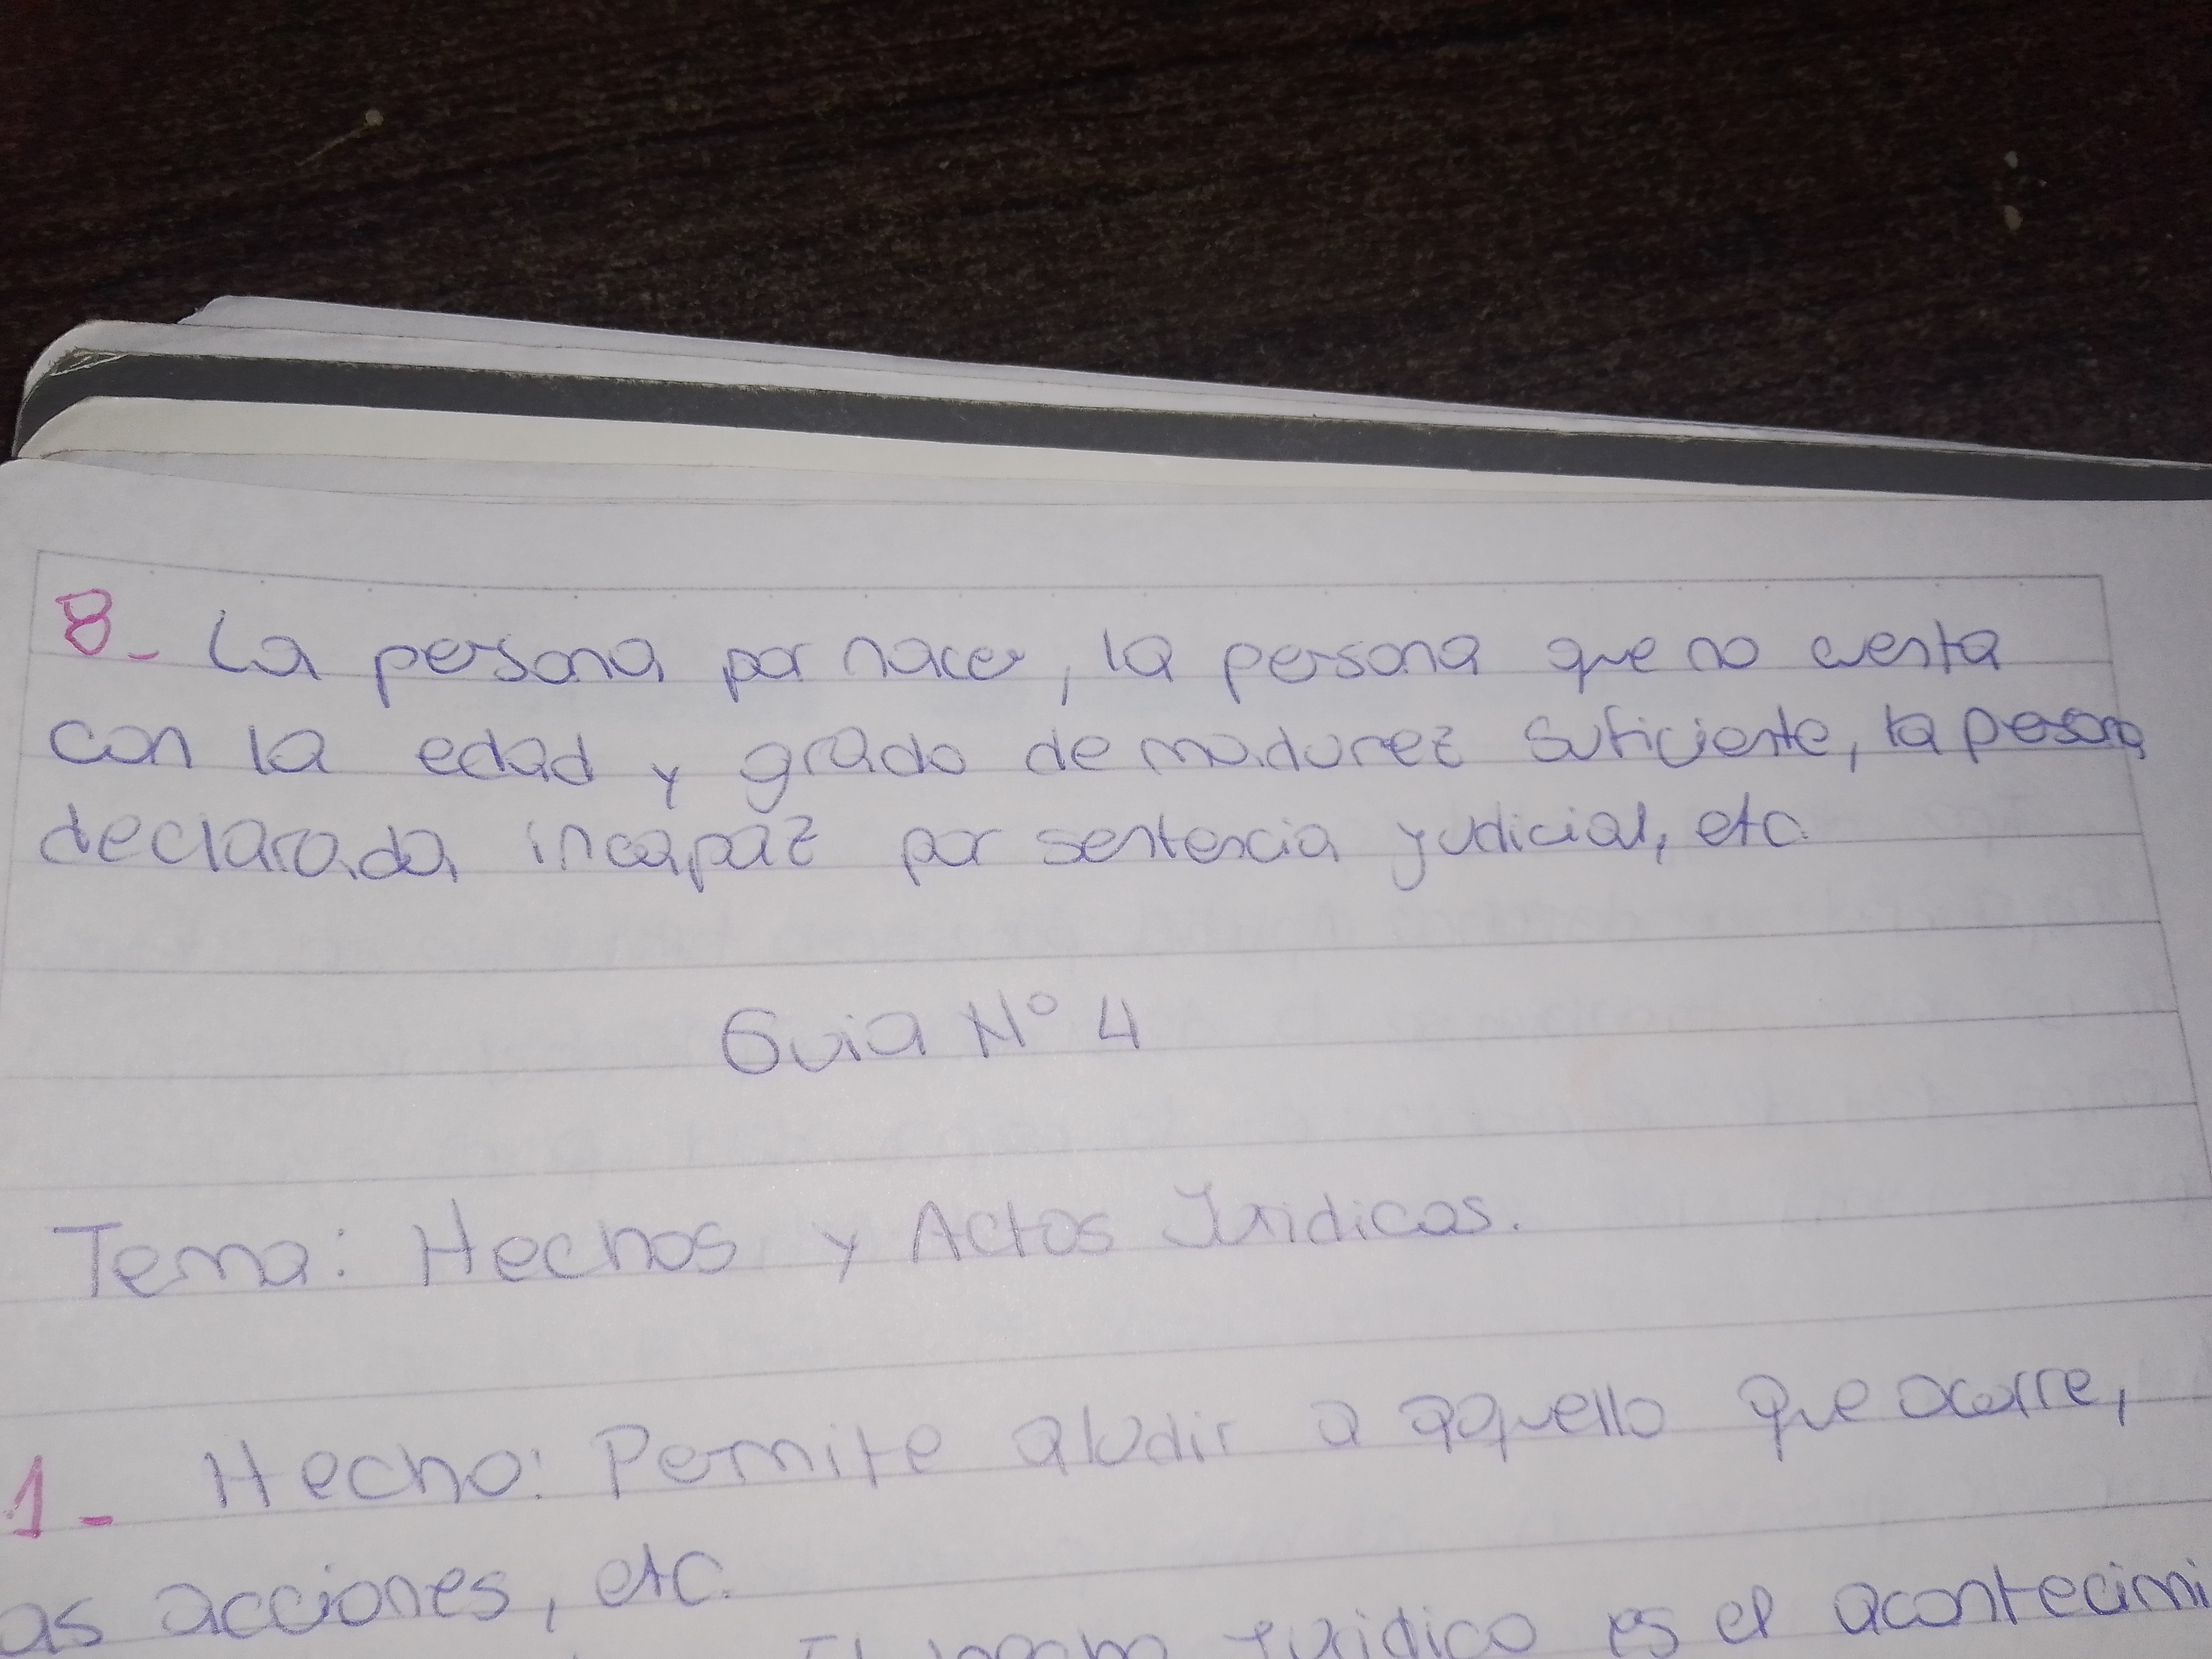 8- La persona por nacer, la persona que no cuenta
con la edad y grado de madurez suficiente, la persona
declarada incapaz por sentencia judicial, etc.
Guia N° 4
Tema: Hechos y Actos Juridicos.
1- Hecho: Permite aludir a aquello que ocurre,
as acciones, etc.
El hecho juridico es el acontecimi